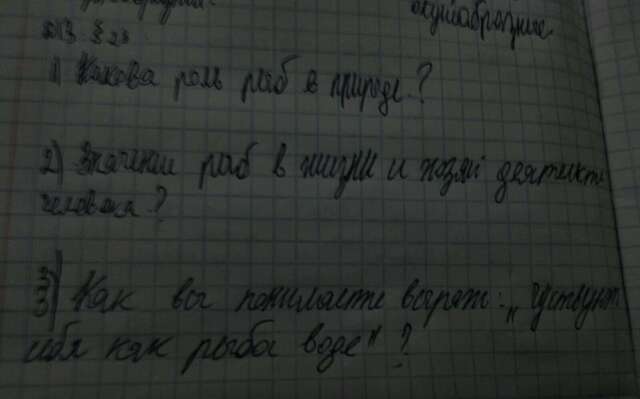 окунеобразные
Д/З. § 23
1) Какова роль рыб в природе?
2) Значение рыб в жизни и хозяй деятельсти
человека?
3) Как вы понимаете выраж: „чувствует
себя как рыба воде"?